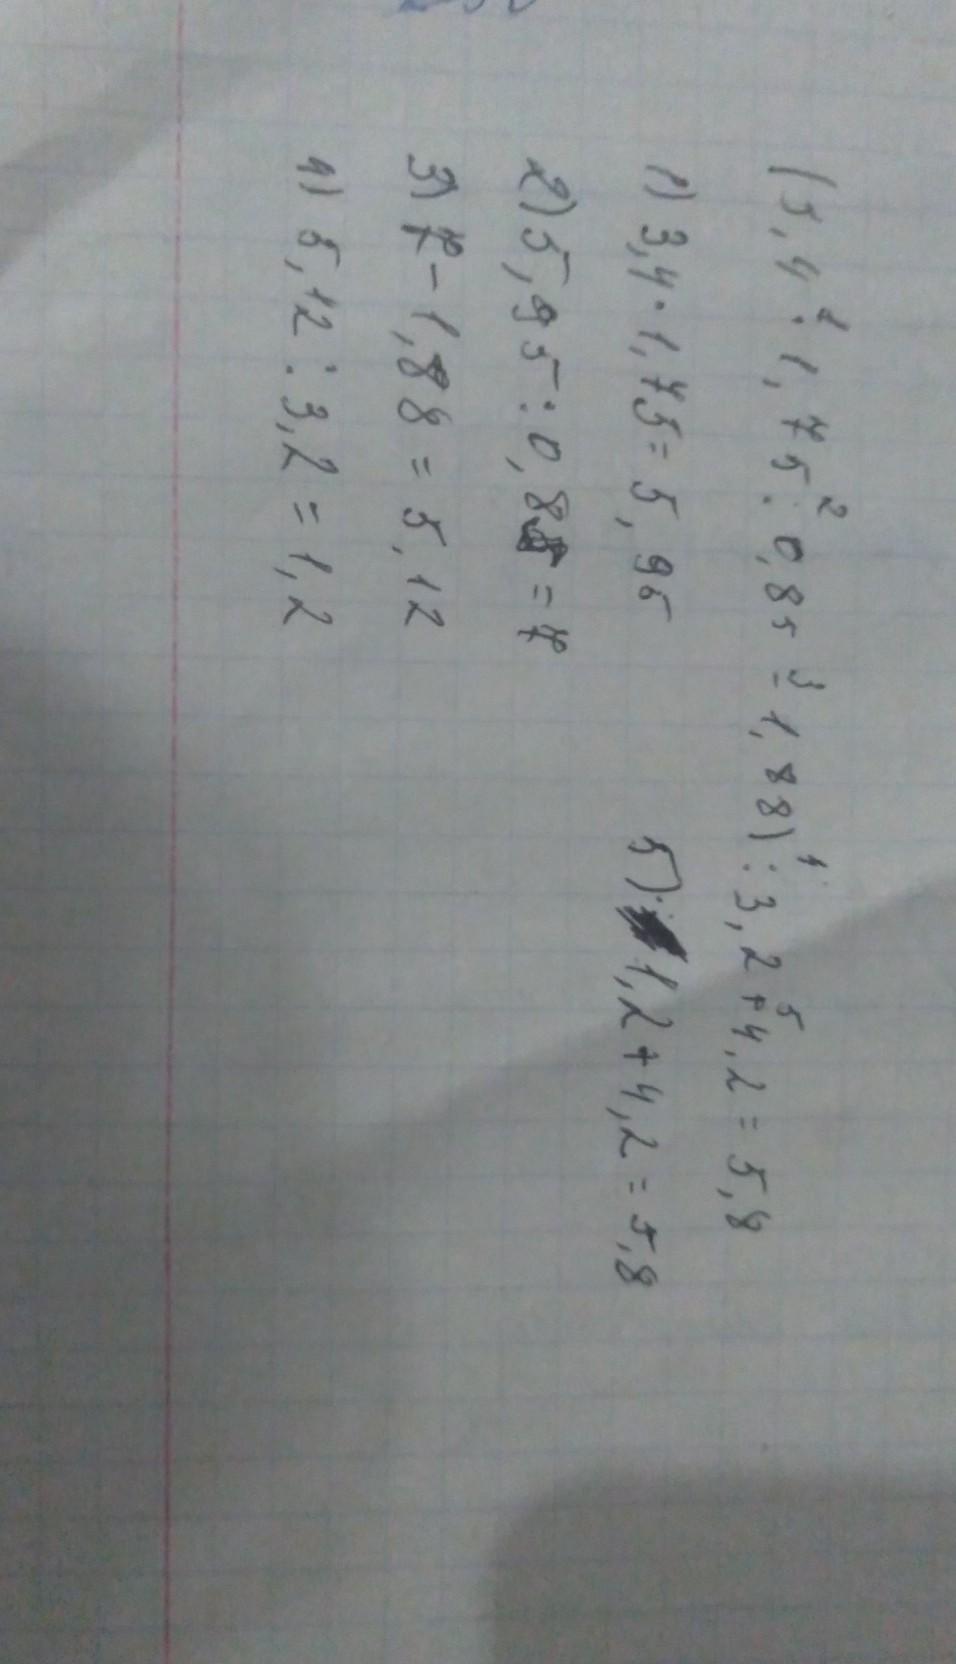 (3,4 · 1,75 : 0,85 - 1,88) : 3,2 + 4,2 = 5,8
1) 3,4 · 1,75 = 5,95
2) 5,95 : 0,85 = 7
3) 7 - 1,88 = 5,12
4) 5,12 : 3,2 = 1,2
5) 1,2 + 4,2 = 5,8